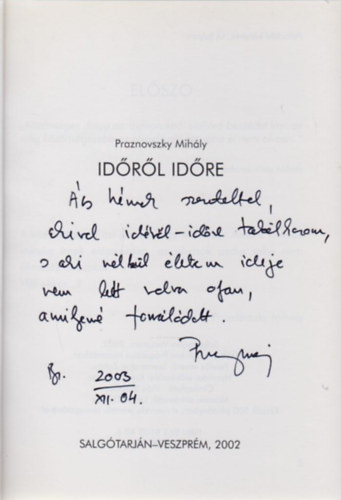 Praznovszky Mihály
IDŐRŐL IDŐRE
Ács Irének szeretettel,
akivel időről-időre találkozom,
s aki nélkül életem ideje
nem lett volna olyan,
amilyenné formálódott.
Bp. 2003
XII. 04.
SALGÓTARJÁN–VESZPRÉM, 2002